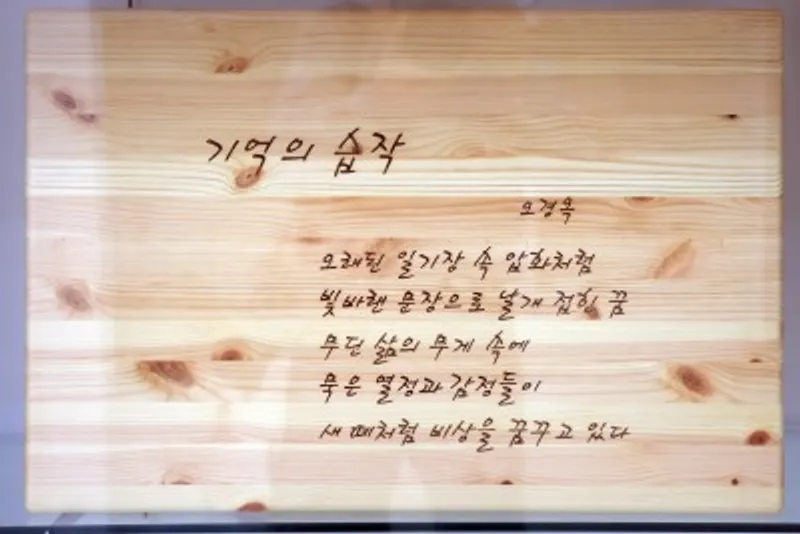 기억의 습작
오경옥
오래된 일기장 속 압화처럼
빛바랜 문장으로 날개 접힌 꿈
무딘 삶의 무게 속에
묵은 열정과 감정들이
새 떼처럼 비상을 꿈꾸고 있다